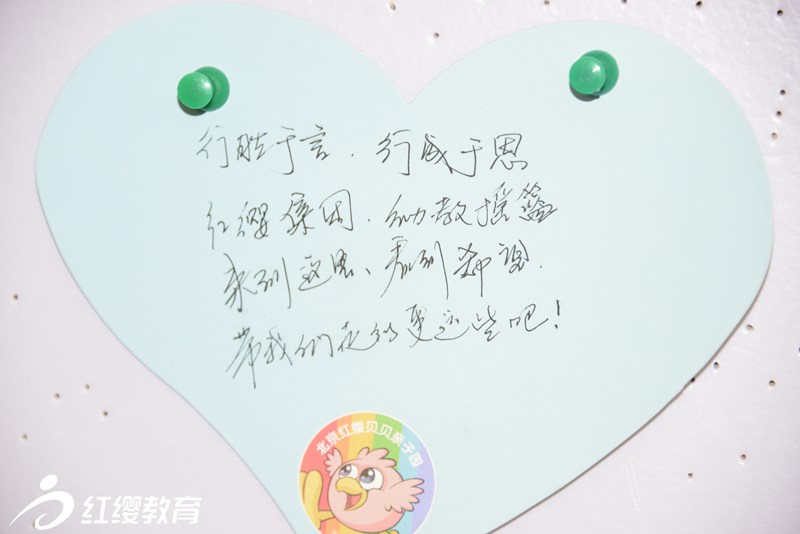 行胜于言．行成于思
红缨集团．幼教摇篮
来到这里、看到希望．
带我们走的更远些吧！
北京红缨贝贝亲子园
红缨教育